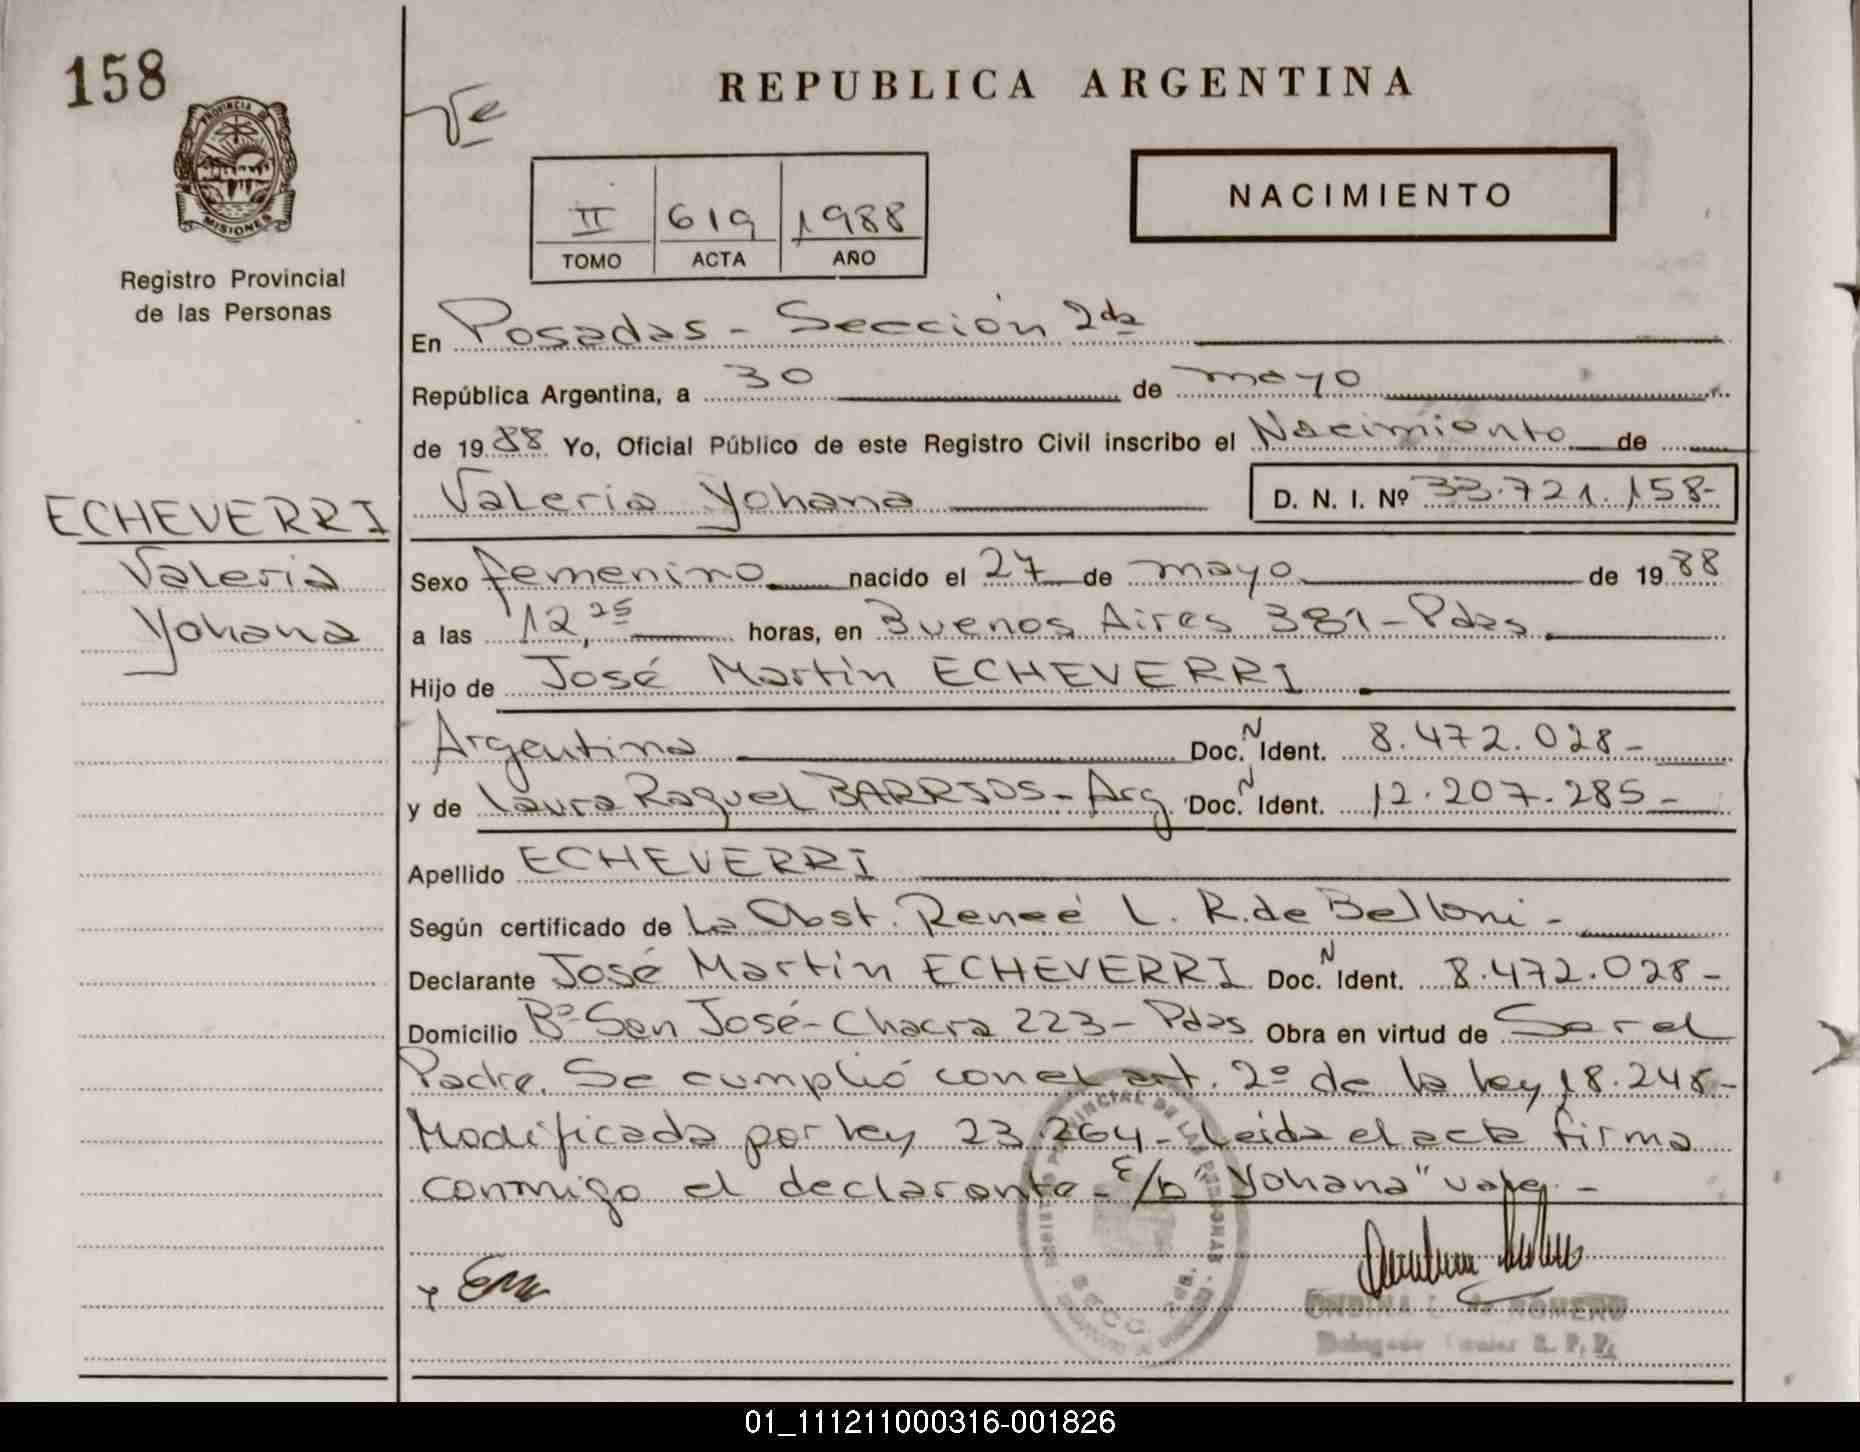 158
PROVINCIA DE
MISIONES
Registro Provincial
de las Personas
ECHEVERRI
Valeria
Yohana
REPUBLICA ARGENTINA
NACIMIENTO
II 619 1988
TOMO ACTA AÑO
En Posadas - Sección 2da
República Argentina, a 30 de mayo
de 1988 Yo, Oficial Público de este Registro Civil inscribo el Nacimiento de
Valeria Yohana D. N. I. Nº 33.721.158-
Sexo femenino nacido el 27 de mayo de 1988
a las 12,25 horas, en Buenos Aires 381 - Pdas
Hijo de José Martín ECHEVERRI
Argentina Doc. N Ident. 8.472.028-
y de Laura Raquel BARRIOS - Arg Doc. N Ident. 12.207.285-
Apellido ECHEVERRI
Según certificado de La Obst. Reneé L. R. de Belloni -
Declarante José Martín ECHEVERRI Doc. N Ident. 8.472.028-
Domicilio Bº San José - Chacra 223 - Pdas Obra en virtud de Ser el
Padre. Se cumplió con el art. 2º de la ley 18.248-
Modificada por ley 23.264 - Leída el acta firma
conmigo el declarante - E/b "Yohana" vale. -
ONDINA L. de ROMERO
01_111211000316-001826